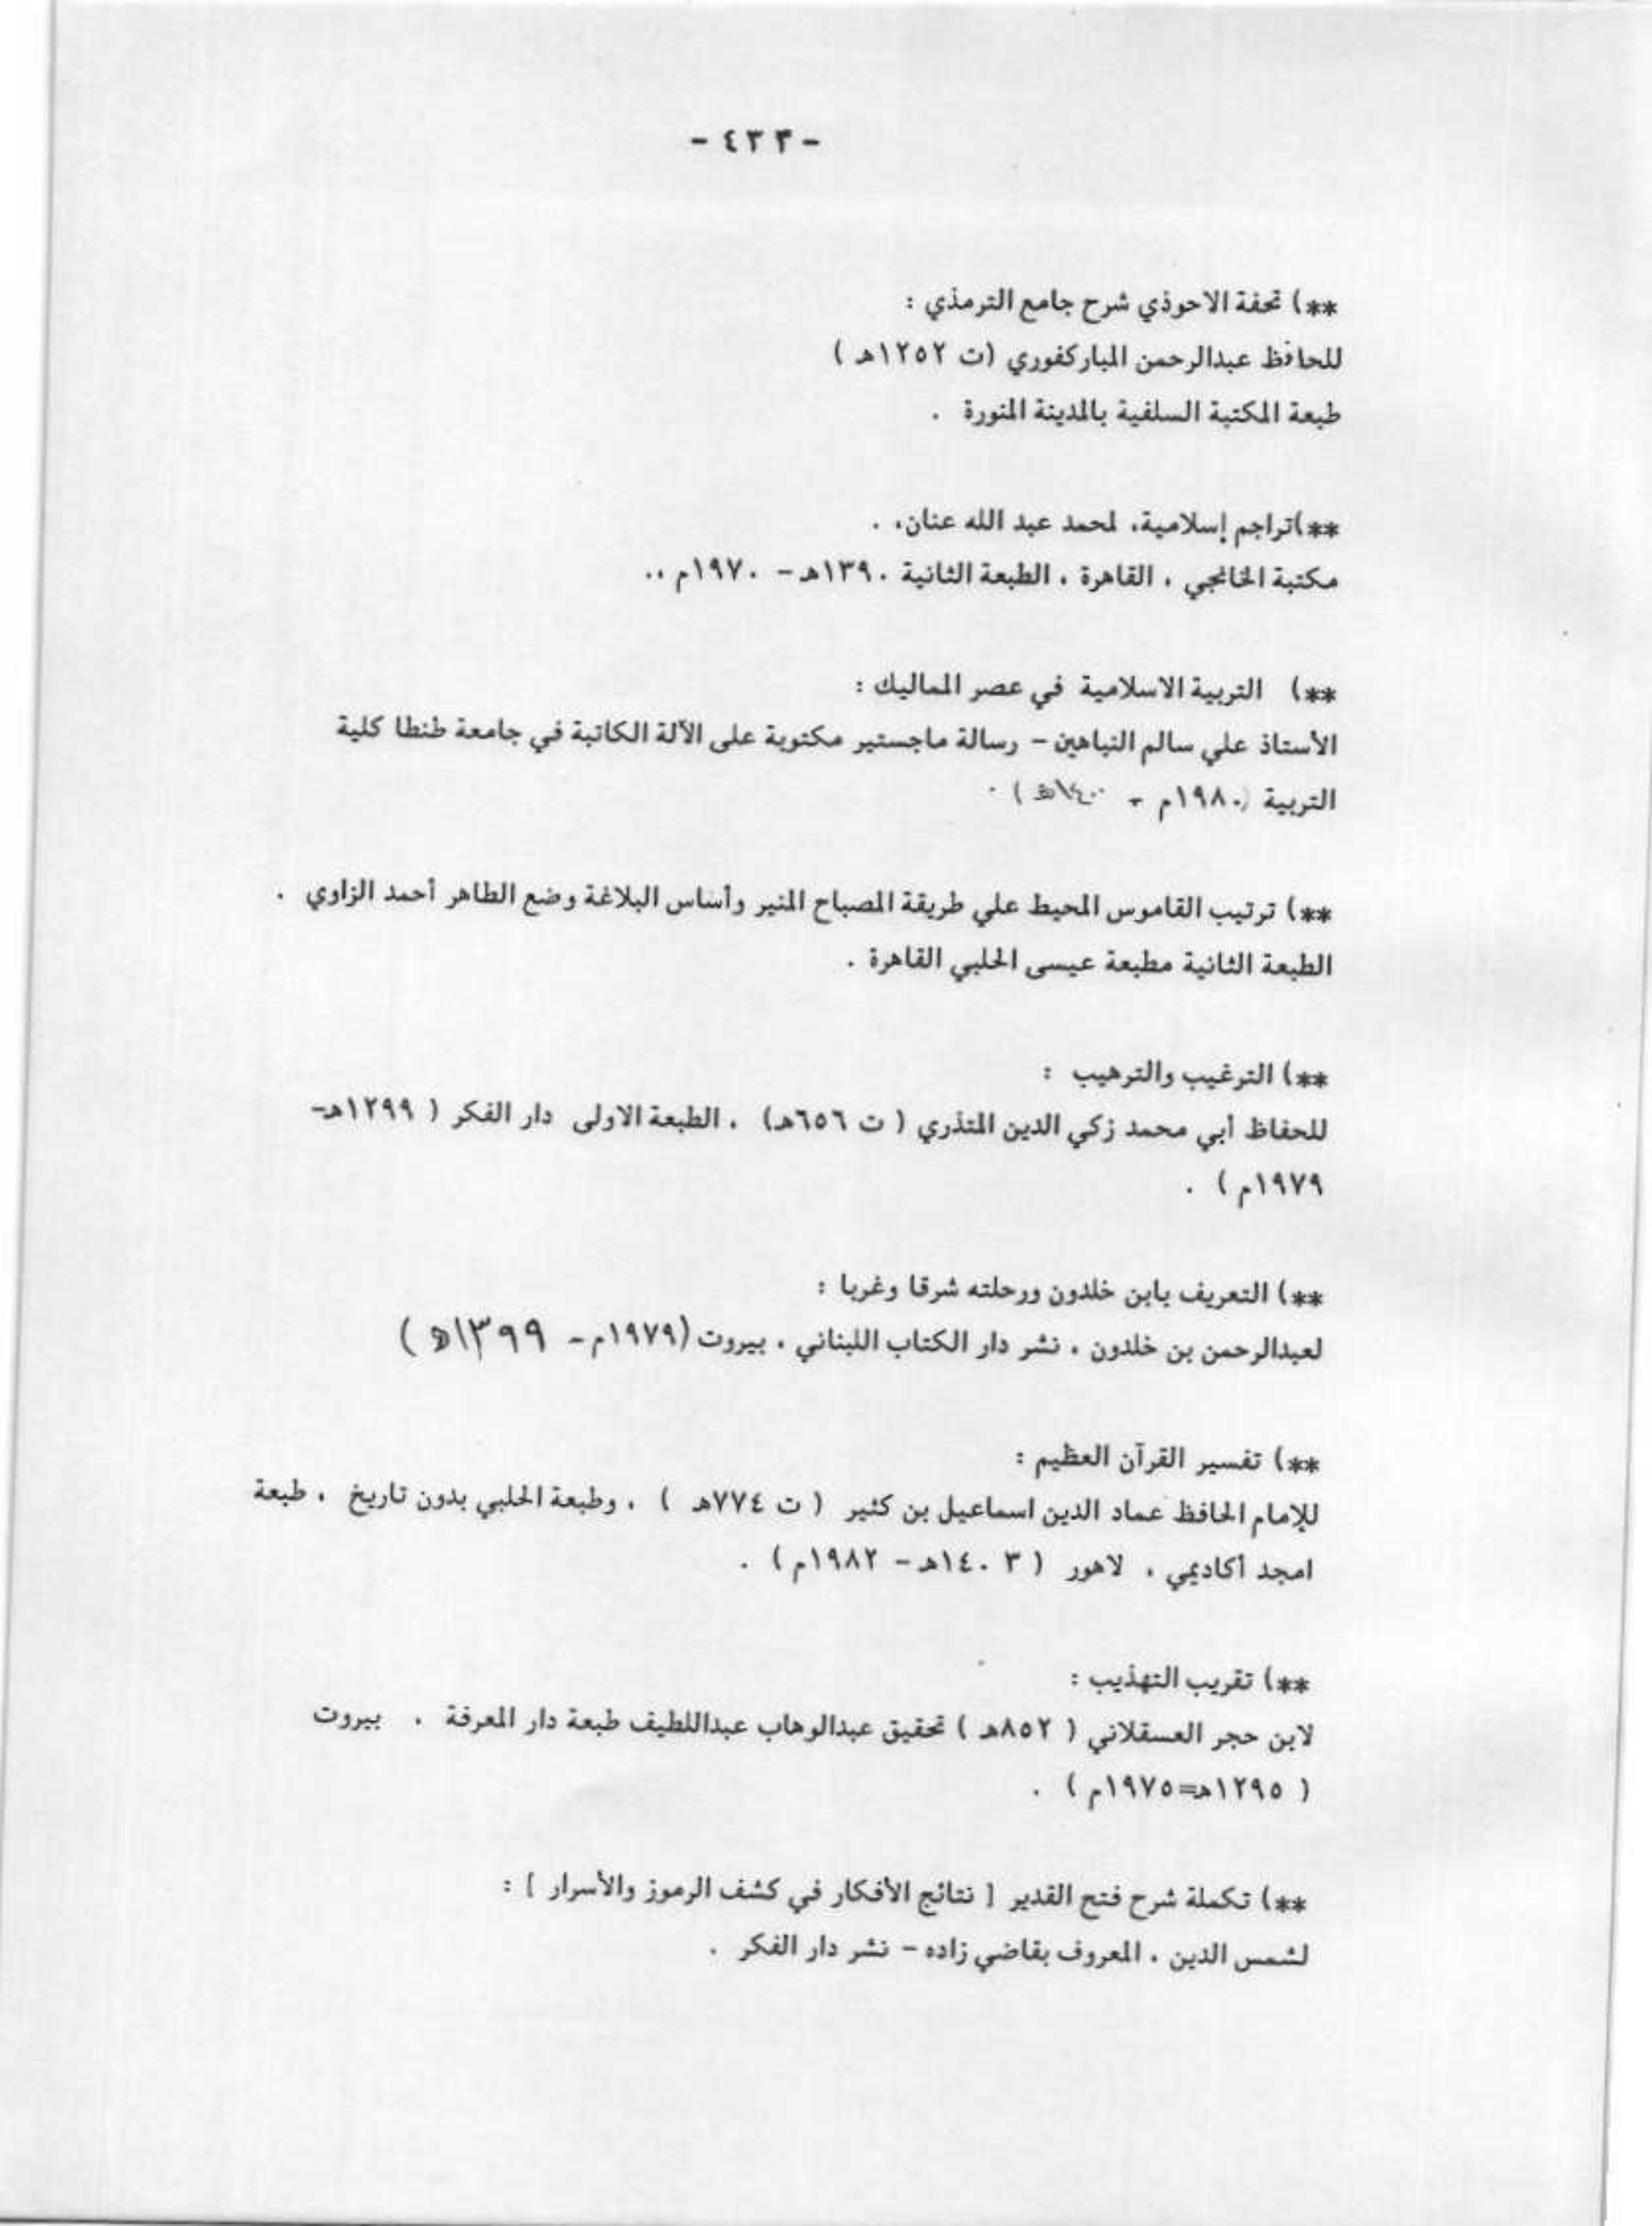 - ٤٣٣ -
**) تحفة الاحوذي شرح جامع الترمذي :
للحافظ عبدالرحمن المباركفوري (ت ١٢٥٢هـ )
طبعة المكتبة السلفية بالمدينة المنورة .
**)تراجم إسلامية، لمحمد عبد الله عنان، .
مكتبة الخانجي ، القاهرة ، الطبعة الثانية ١٣٩٠هـ - ١٩٧٠م ،.
**) التربية الاسلامية في عصر المماليك :
الأستاذ علي سالم النباهين - رسالة ماجستير مكتوبة على الآلة الكاتبة في جامعة طنطا كلية
التربية (١٩٨٠م - ١٤٠٠هـ ) .
**) ترتيب القاموس المحيط علي طريقة المصباح المنير وأساس البلاغة وضع الطاهر أحمد الزاوي .
الطبعة الثانية مطبعة عيسى الحلبي القاهرة .
**) الترغيب والترهيب :
للحفاظ أبي محمد زكي الدين المنذري ( ت ٦٥٦هـ) ، الطبعة الاولى دار الفكر ( ١٢٩٩هـ-
١٩٧٩م ) .
**) التعريف بابن خلدون ورحلته شرقا وغربا :
لعبدالرحمن بن خلدون ، نشر دار الكتاب اللبناني ، بيروت (١٩٧٩م - ١٣٩٩هـ )
**) تفسير القرآن العظيم :
للإمام الحافظ عماد الدين اسماعيل بن كثير ( ت ٧٧٤هـ ) ، وطبعة الحلبي بدون تاريخ ، طبعة
امجد أكاديمي ، لاهور ( ١٤٠٣هـ - ١٩٨٢م ) .
**) تقريب التهذيب :
لابن حجر العسقلاني ( ٨٥٢هـ ) تحقيق عبدالوهاب عبداللطيف طبعة دار المعرفة . بيروت
( ١٢٩٥هـ=١٩٧٥م ) .
**) تكملة شرح فتح القدير [ نتائج الأفكار في كشف الرموز والأسرار ] :
لشمس الدين ، المعروف بقاضي زاده - نشر دار الفكر .